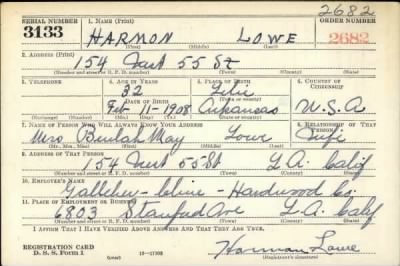 2682
SERIAL NUMBER 1. NAME (Print) ORDER NUMBER
3133 HARMON LOWE 2682
(First) (Middle) (Last)
2. ADDRESS (Print)
154 East 55 St
(Number and street or R. F. D. number) (Town) (County) (State)
3. TELEPHONE 4. AGE IN YEARS 5. PLACE OF BIRTH 6. COUNTRY OF CITIZENSHIP
32
DATE OF BIRTH (Town or county)
Feb-11-1908 Arkansas U.S.A
(Exchange) (No.) (Mo.) (Day) (Yr.) (State or country)
7. NAME OF PERSON WHO WILL ALWAYS KNOW YOUR ADDRESS 8. RELATIONSHIP OF THAT PERSON
Mrs. Beulah May Lowe Wife
(Mr., Mrs., Miss) (First) (Middle) (Last)
9. ADDRESS OF THAT PERSON
154 East 55 St L.A. Calif
(Number and street or R. F. D. number) (Town) (County) (State)
10. EMPLOYER'S NAME
Hardwood Co.
11. PLACE OF EMPLOYMENT OR BUSINESS
6823 Stanford Ave L.A. Calif
(Number and street or R. F. D. number) (Town) (County) (State)
I AFFIRM THAT I HAVE VERIFIED ABOVE ANSWERS AND THAT THEY ARE TRUE.
REGISTRATION CARD
D. S. S. Form 1 (over) Harmon Lowe
(Registrant's signature)